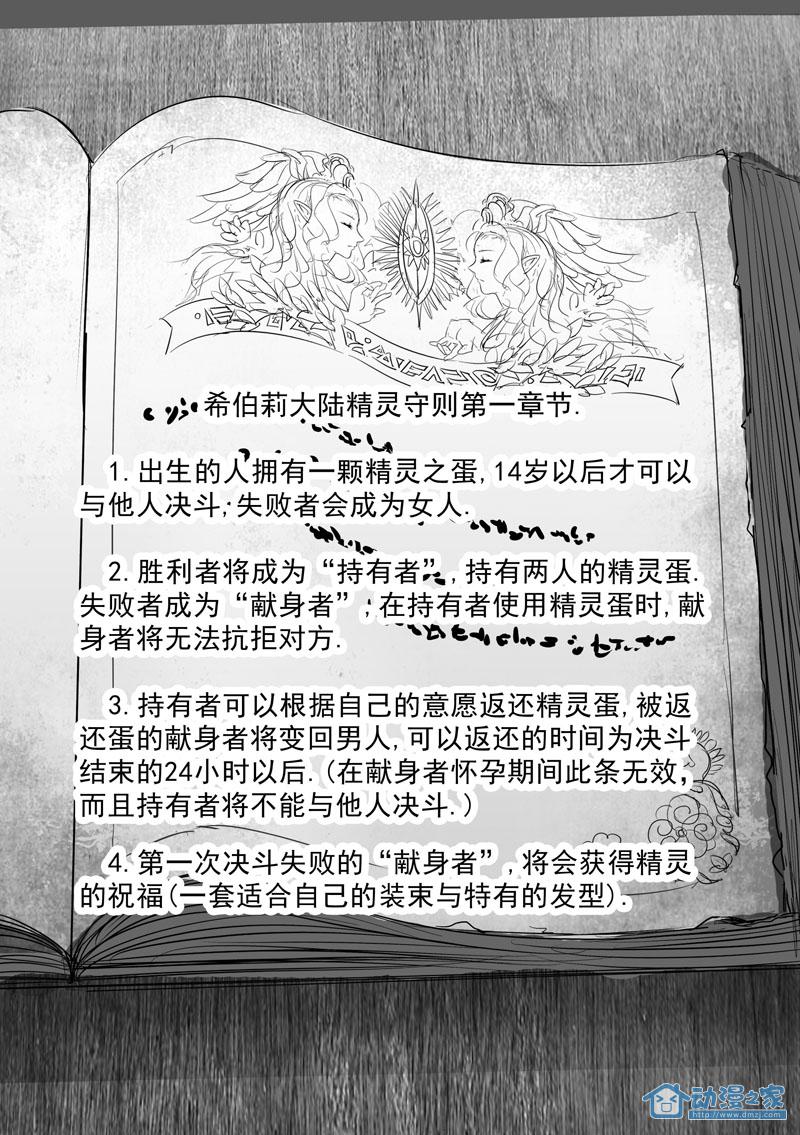 希伯莉大陆精灵守则第一章节.
1.出生的人拥有一颗精灵之蛋,14岁以后才可以
与他人决斗;失败者会成为女人.
2.胜利者将成为“持有者”,持有两人的精灵蛋.
失败者成为“献身者”;在持有者使用精灵蛋时,献
身者将无法抗拒对方.
3.持有者可以根据自己的意愿返还精灵蛋,被返
还蛋的献身者将变回男人,可以返还的时间为决斗
结束的24小时以后.(在献身者怀孕期间此条无效,
而且持有者将不能与他人决斗.)
4.第一次决斗失败的“献身者”,将会获得精灵
的祝福(一套适合自己的装束与特有的发型).
动漫之家
www.dmzj.com